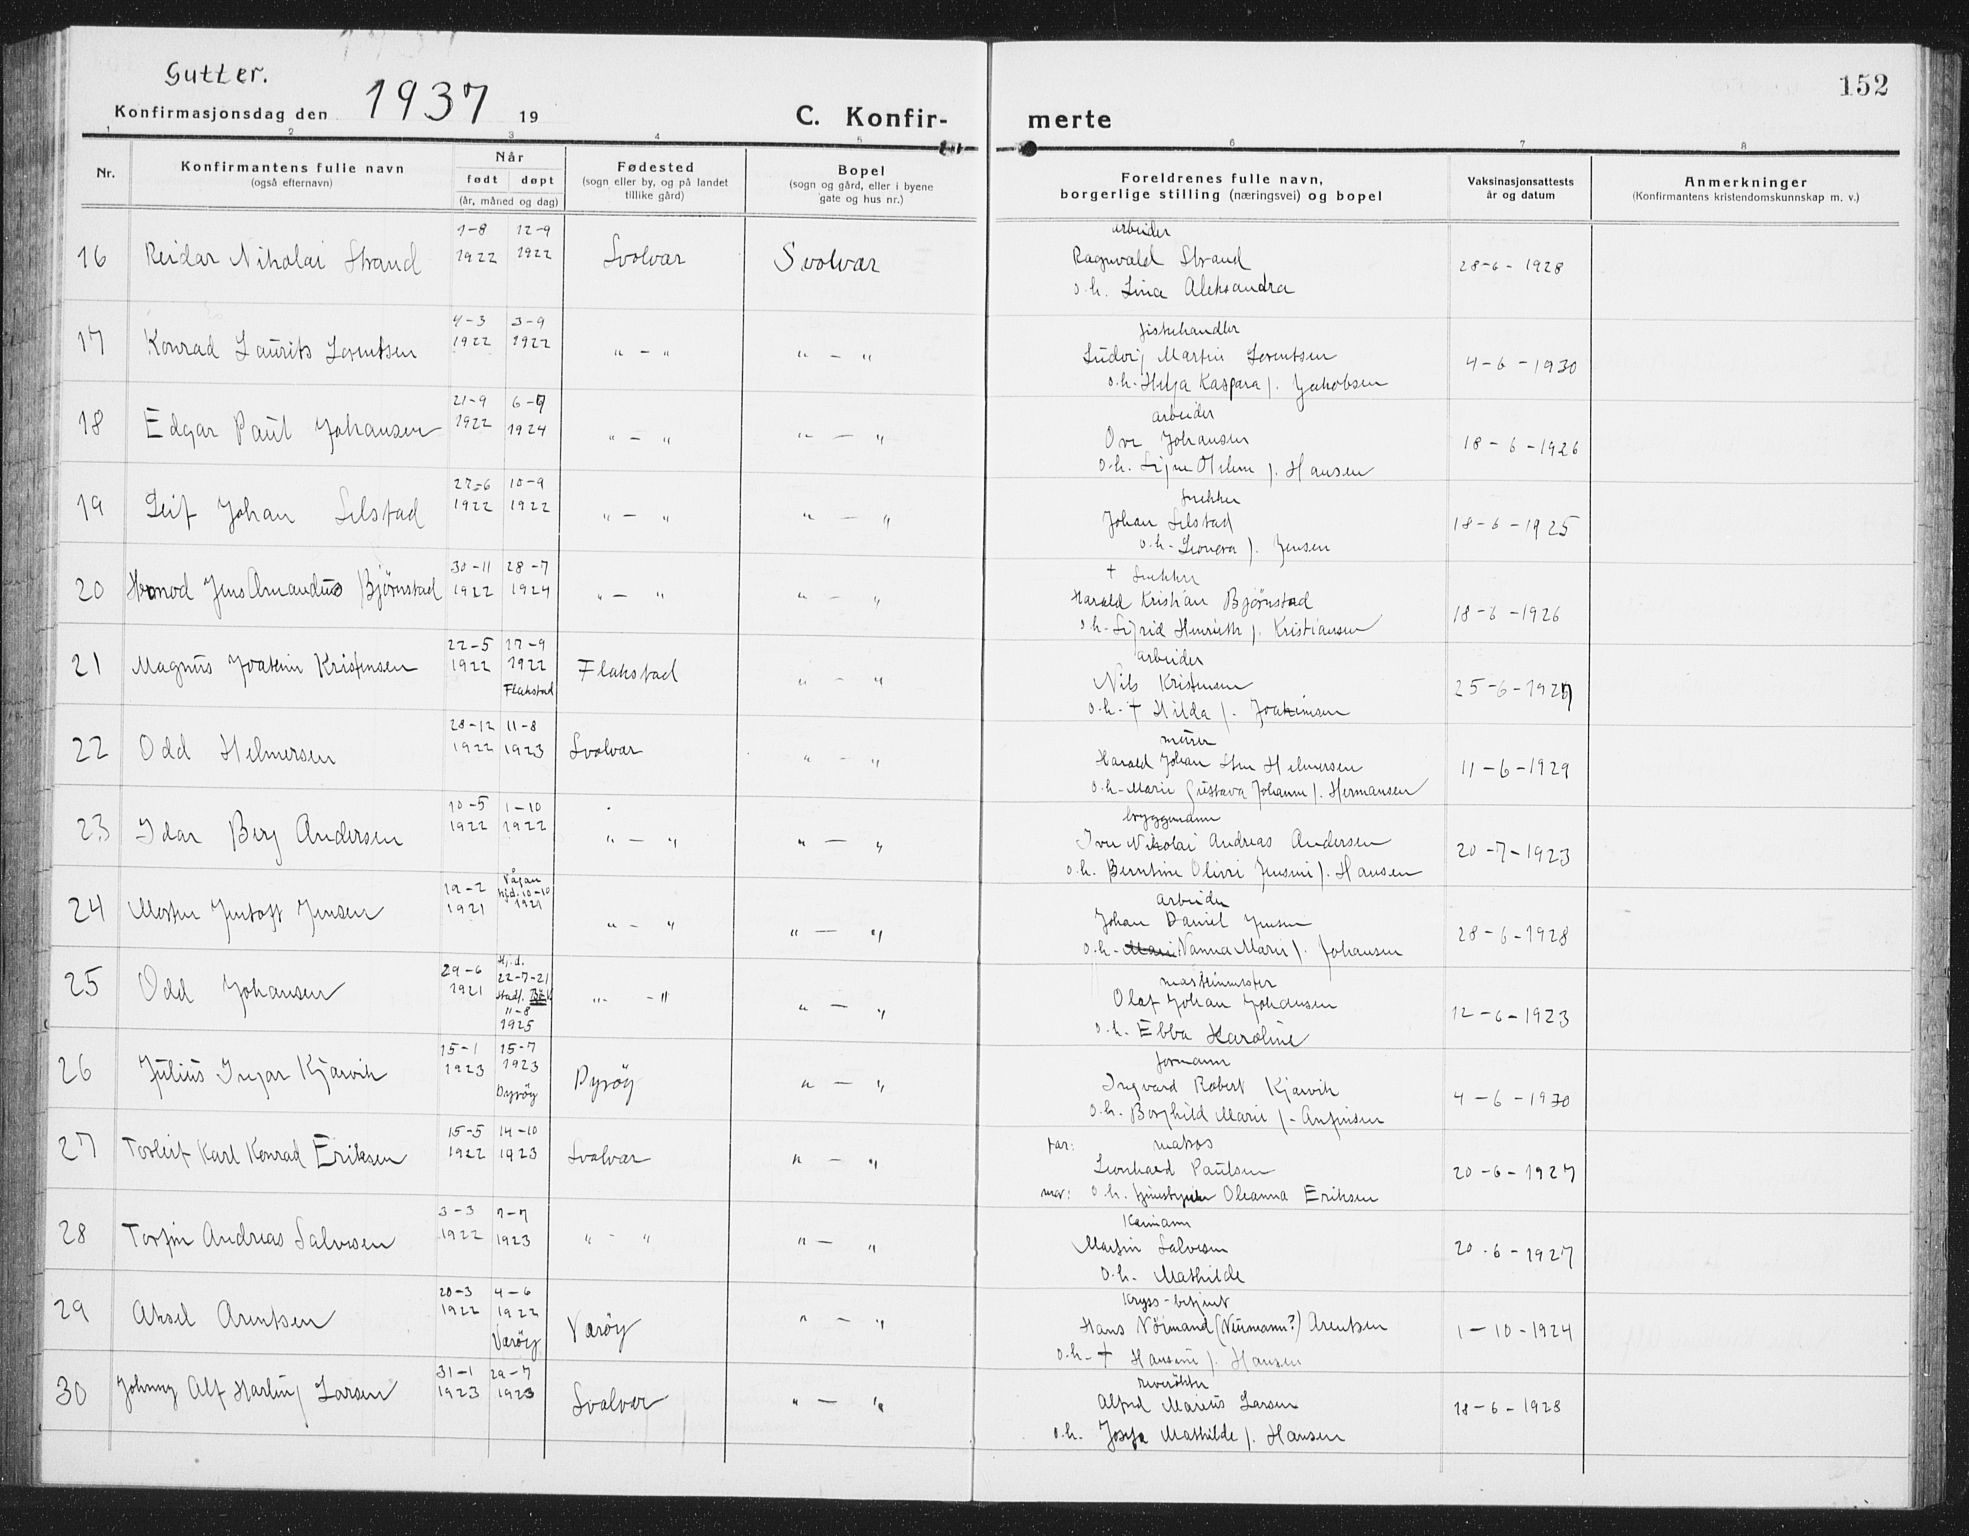 Gutter.
152
Konfirmasjonsdag den 1937 19
C. Konfirmerte
1 2 3 4 5 6 7 8
Nr.
Konfirmantens fulle navn
(også efternavn)
Når
født døpt
(år, måned og dag)
Fødested
(sogn eller by, og på landet
tillike gård)
Bopel
(sogn og gård, eller i byene
gate og hus nr.)
Foreldrenes fulle navn,
borgerlige stilling (næringsvei) og bopel
Vaksinasjonsattests
år og datum
Anmerkninger
(Konfirmantens kristendomskunnskap m. v.)
1-8 12-9 arbeider
16 Reidar Nikolai Strand 1922 1922 Svolvær Svolvær Ragnvald Strand 28-6-1928
o.h. Lina Aleksandra
4-3 3-9 fiskehandler
17 Konrad Laurits Lorentsen 1922 1922 " - " " - " Ludvig Martin Lorentsen 4-6-1930
o.h. Helga Kaspara f. Jakobsen
21-9 6-9 arbeider
18 Edgar Paul Johansen 1922 1924 " - " " - " Ove Johansen 18-6-1926
o.h. Signe f. Hansen
27-6 10-9 snekker
19 Leif Johan Selstad 1922 1922 " - " " - " Johan Selstad 18-6-1925
o.h. f. Jensen
30-11 28-7 + snekker
20 Hermod Jens Amandus Bjørnstad 1922 1924 " - " " - " Harald Kristian Bjørnstad 18-6-1926
o.h. Sigrid Henriette f. Kristiansen
22-5 17-9 arbeider
21 Magnus Joakim Kristensen 1922 1922 Flakstad " - " Nils Kristensen 25-6-1927
Flakstad o.h. + Hilda f. Joakimsen
28-12 11-8 murer
22 Odd Helmersen 1922 1923 Svolvær " - " Harald Johan Helmersen 11-6-1929
o.h. Marie Gustava Johanne f. Hermansen
10-5 1-10 bryggemann
23 Idar Berg Andersen 1922 1922 " - " " - " Iver Nikolai Andreas Andersen 20-7-1923
o.h. Berntine Olivri Jensine f. Hansen
19-2 Vågan arbeider
24 Jentoft Jensen 1921 hjd. 10-10 1921 " - " " - " Johan Daniel Jensen 28-6-1928
o.h. Marie Nanna Marie f. Johansen
29-6 Hj.d. maskinmester
25 Odd Johansen 1921 22-7-21 stadf. 11-8 1925 " - " " - " Olaf Johan Johansen 12-6-1923
o.h. Ebba Karoline
15-1 15-7 formann
26 Julius Ingar Kjærvik 1923 1923 Dyrøy " - " Ingvard Robert Kjærvik 4-6-1930
Dyrøy o.h. Borghild Marie f. Anfinsen
15-5 14-10 far: matros
27 Torleif Karl Konrad Eriksen 1922 1923 Svolvær " - " Leonhard Paulsen 20-6-1927
mor: o.h. Oleanna Eriksen
3-3 7-7 Kaimann
28 Torfin Andreas Salvesen 1922 1923 " - " " - " Martin Salvesen 20-6-1927
o.h. Mathilde
20-3 4-6 Kryss-betjent
29 Aksel Arentsen 1922 1922 Værøy " - " Hans Normand (Neumann?) Arentsen 1-10-1924
Værøy o.h. + Hansine f. Hansen
31-1 29-7
30 Johnny Alf Harling Larsen 1923 1923 Svolvær " - " Alfred Marius Larsen 18-6-1928
o.h. Josefa Mathilde f. Hansen